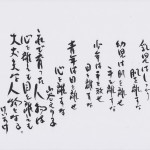 乳児はしっかり
肌を離すな
幼児は肌を離せ
手を離すな
少年は手を離せ
目を離すな
青年は目を離せ
心を離すな
これで育った人物は
心も目も離れても
大丈夫な人物となる。